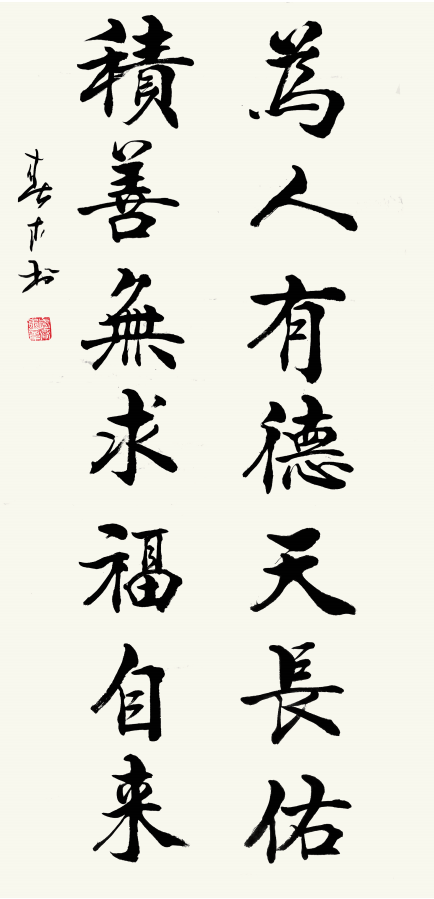 為人有德天長佑
積善無求福自来